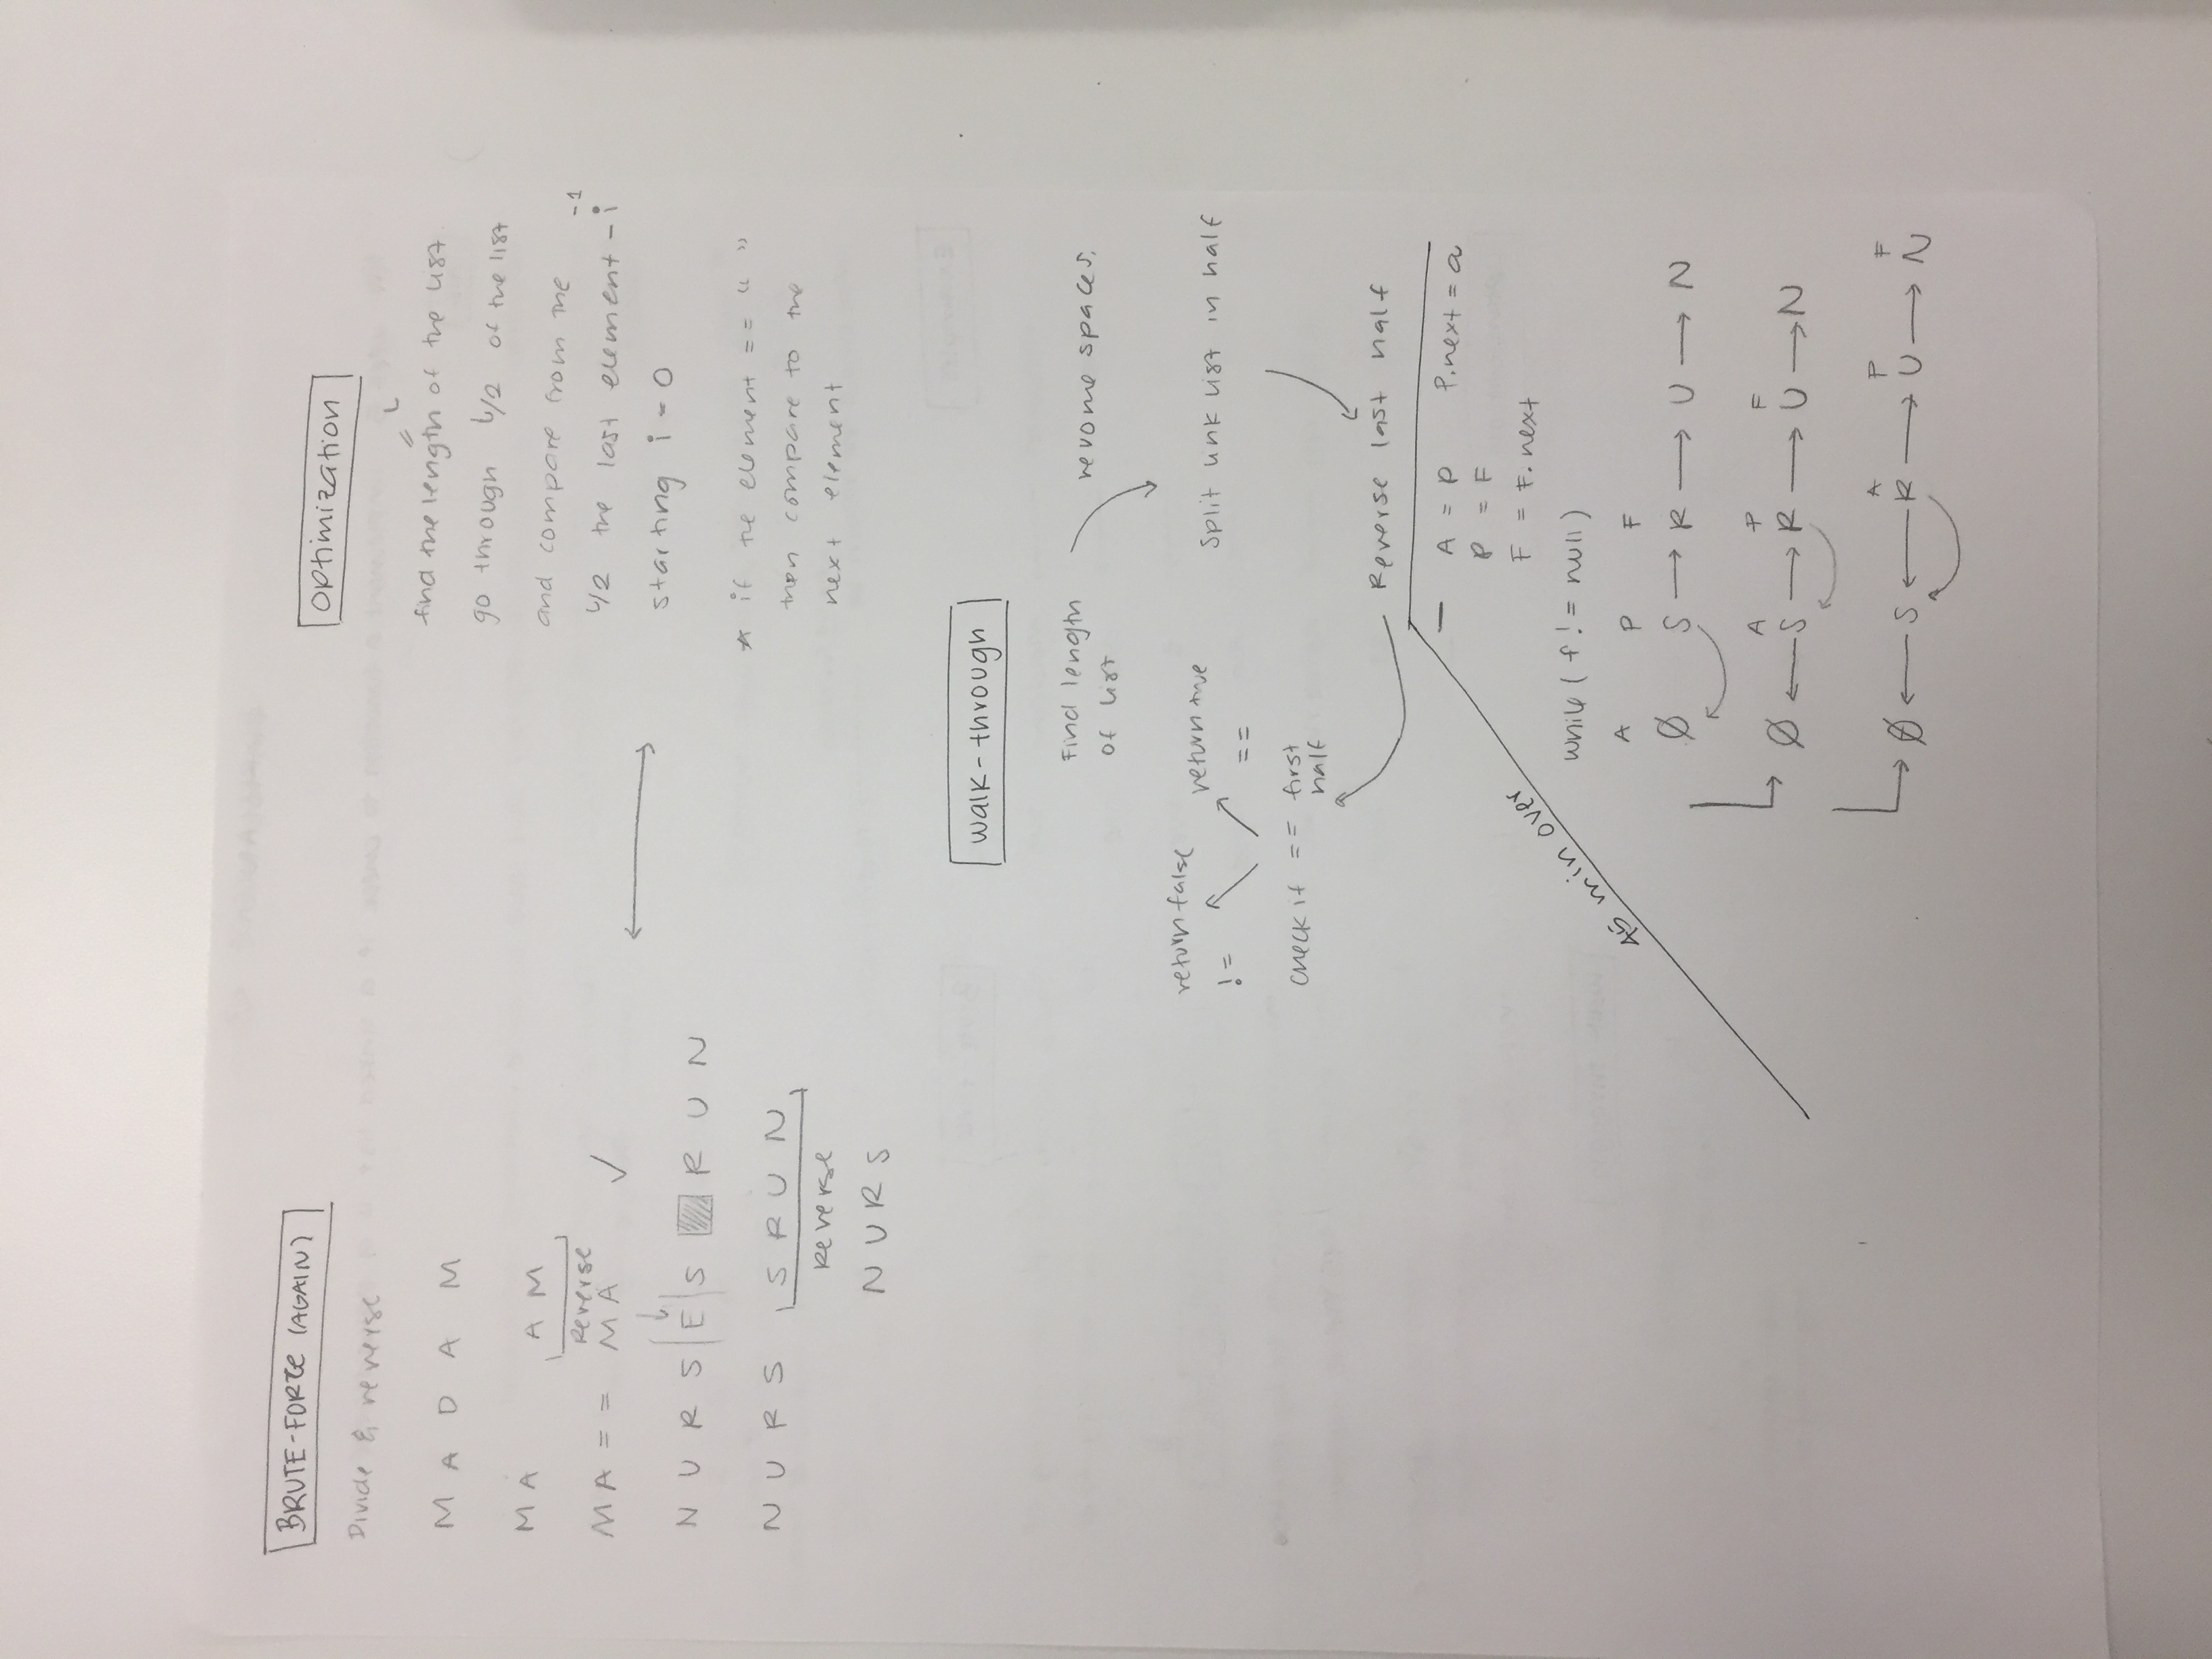 BRUTE-FORCE (AGAIN)
Divide & reverse
M A D A M
M A A M
Reverse
M A = = M A ✓
N U R S | E | S R U N
N U R S S R U N
Reverse
N U R S
Optimization
L
find the length of the list.
go through L/2 of the list
and compare from the
-1
L/2 the last element - i
starting i = 0
* if the element == " "
then compare to the
next element
Walk-through
Find length
of list
revome spaces.
Split link list in half
Reverse last half
check if == first
half
return false
!=
return true
==
45 min over
— A = P P.next = a
P = F
F = F.next
while ( f != null )
A P F
Ø S → R → U → N
A P F
Ø ← S → R → U → N
A P F
Ø ← S ← R → U → N